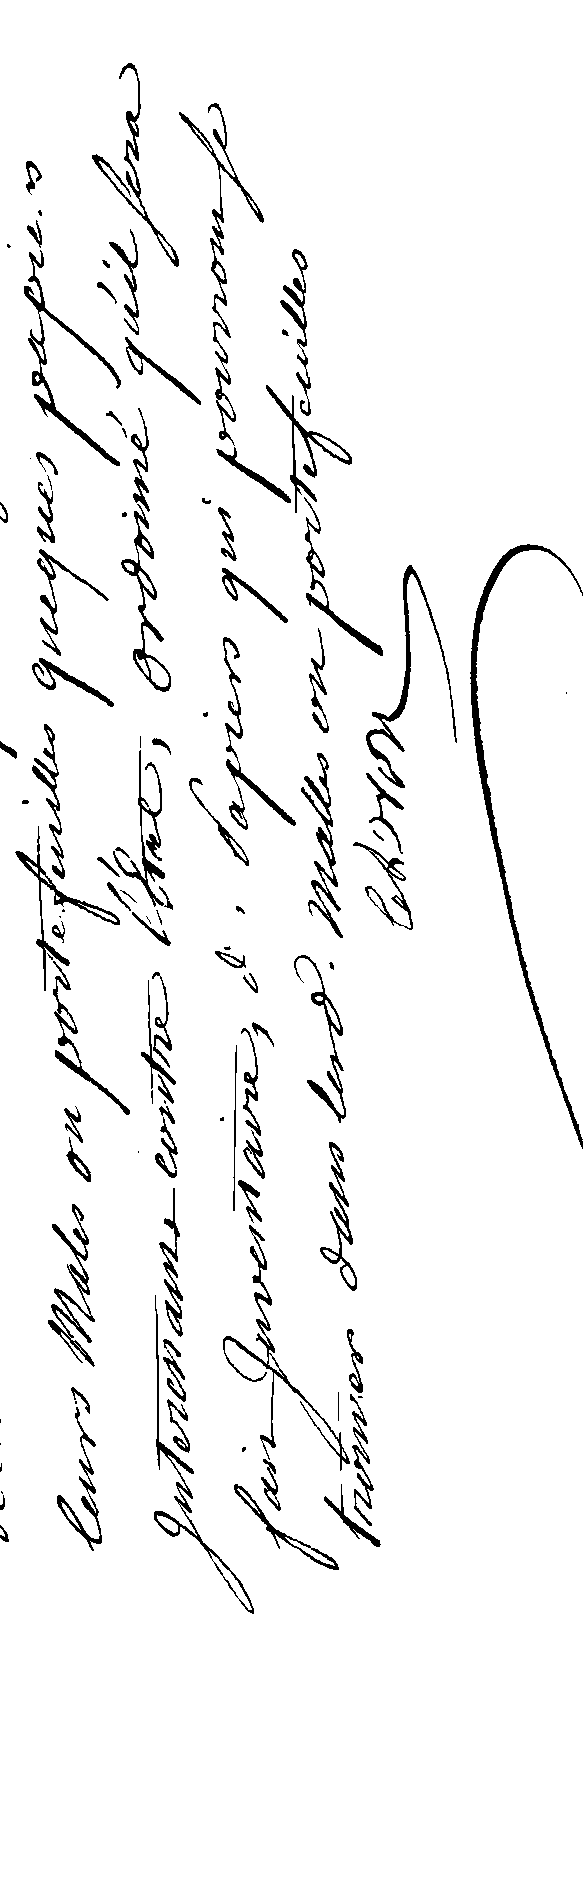 leurs Males ou portefeuilles queques papiers
Interesants contre l'État, ordoinné qu'il fera
fair Inventaire, d. Papiers qui pourront se
trouver dans leurd. Malles ou portefeuilles